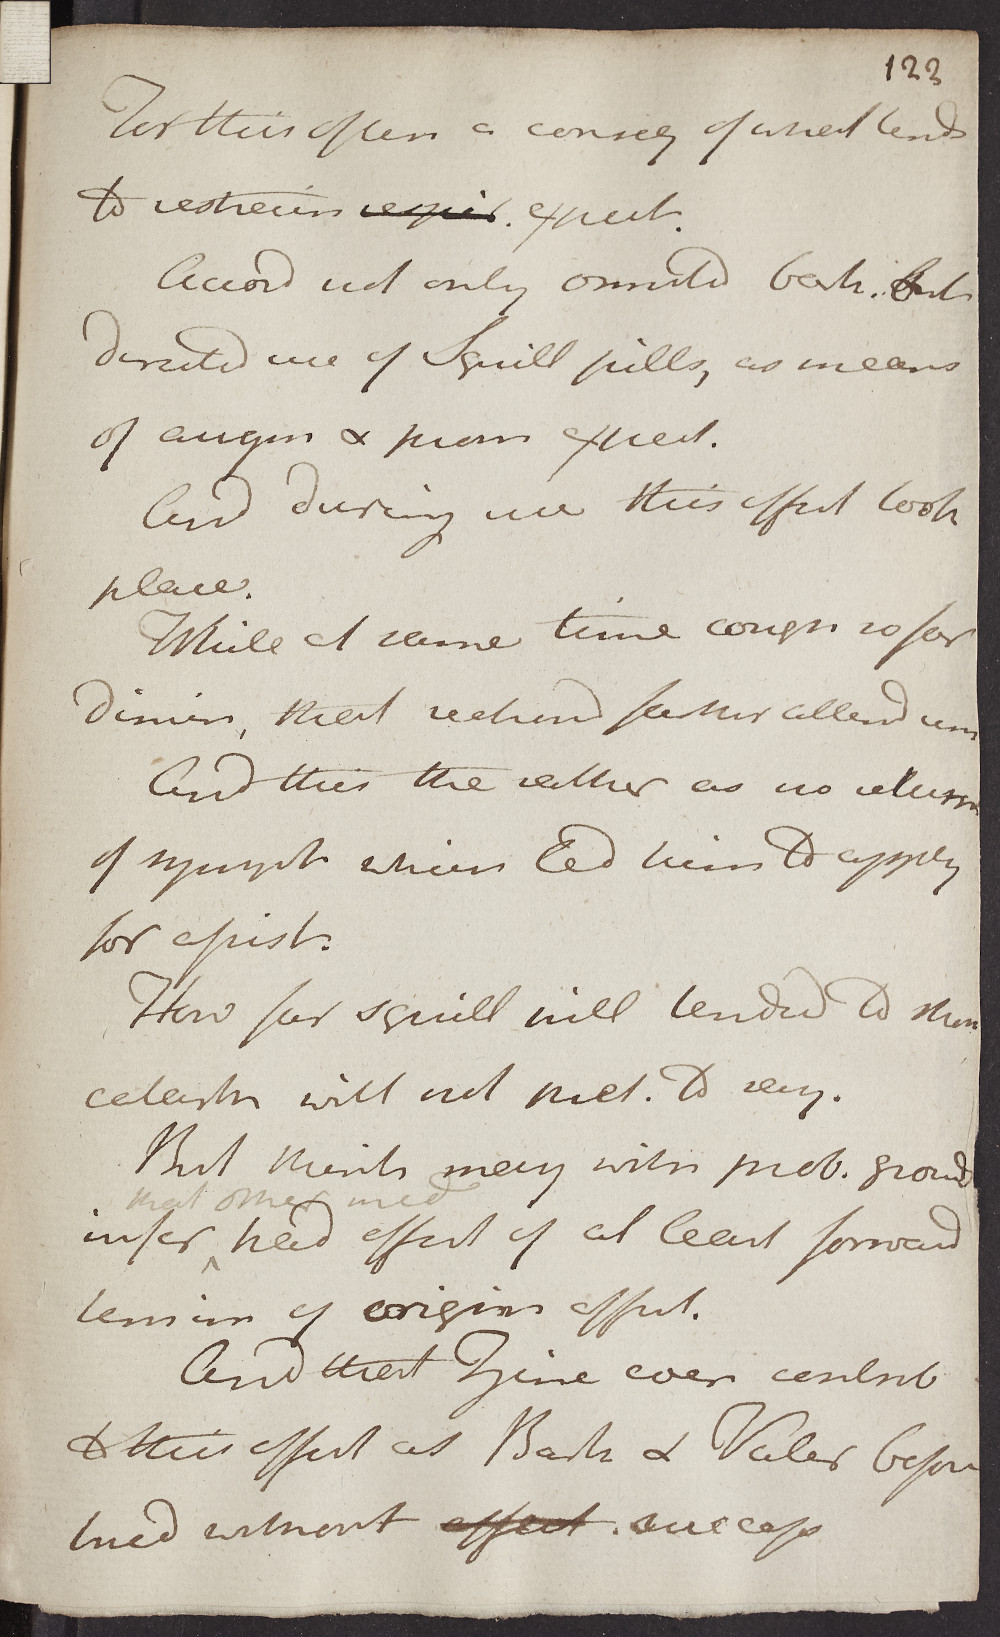 123
For this often a conseq of what tends
to restrain respir. expect.
Accord not only omitted bark. But
directed use of Squill pills, as means
of augm & prom expect.
And during use this effect took
place.
While at same time cough so far
dimin, that reckond farther attend unn
And this the rather as no return
of sympt which led him to apply
for assist.
How far squill pill tended to
catarrh will not pret. to say.
But think may with prob. ground
that other med
infer had effect of at least forward
termin of origin affect.
And that Zinc even contrib
to this effect as Bark & Valer before
tried without effect. success